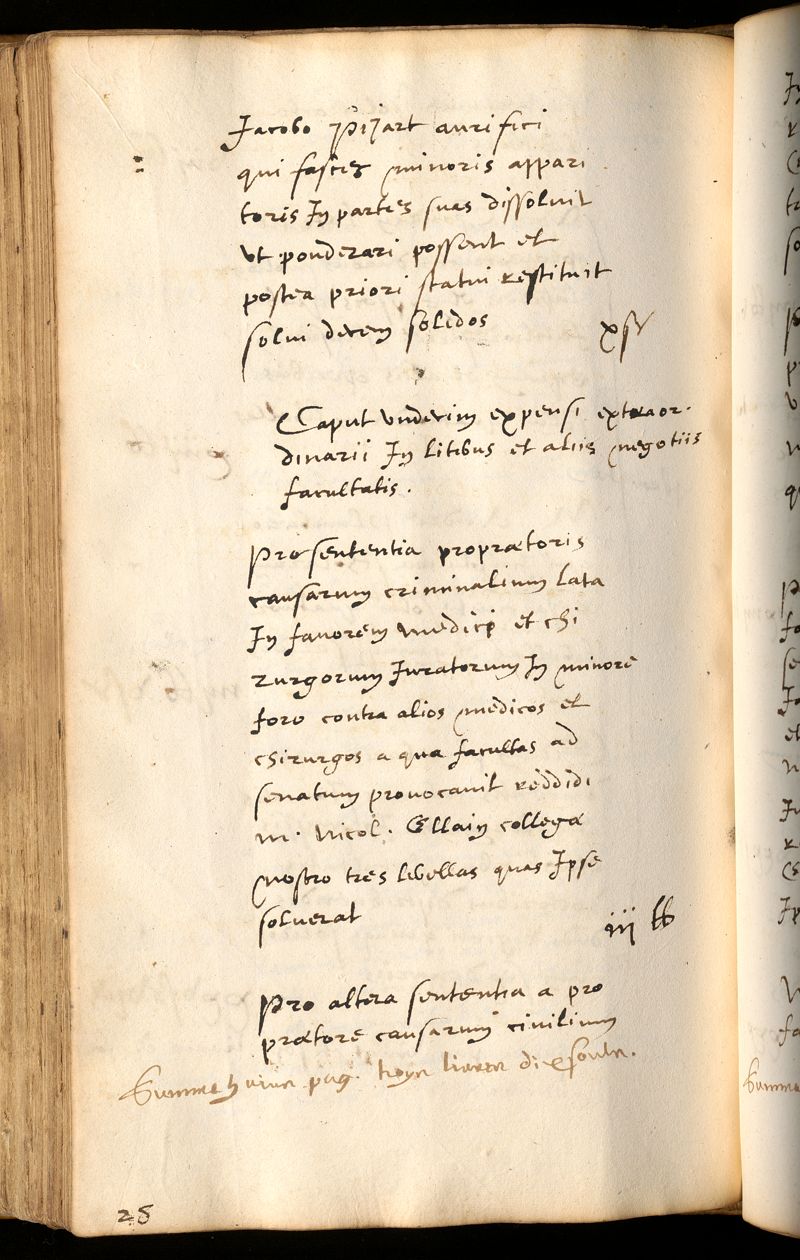 Jacobo Pijart aurifici
qui fasces minoris appari
toris In partes suas dissoluit
ut ponderari possent et
postea priori statui restituit
solui decem solidos xs
Caput undecim expensi extraor-
dinarii In litibus et aliis negotiis
facultatis.
Pro sententia proprætoris
causarum criminalium lata
In favorem medici et chi
rurgorum Juratorum In minore
foro contra alios medicos et
chirurgos a qua facultas ad
senatum provocavit reddidi
m. Nicol. Ellain collegæ
nostro tres libellas quas Ipse
solverat iii lb
Pro altera sententia a pro
prætore causarum civilium
Summa pag.
28